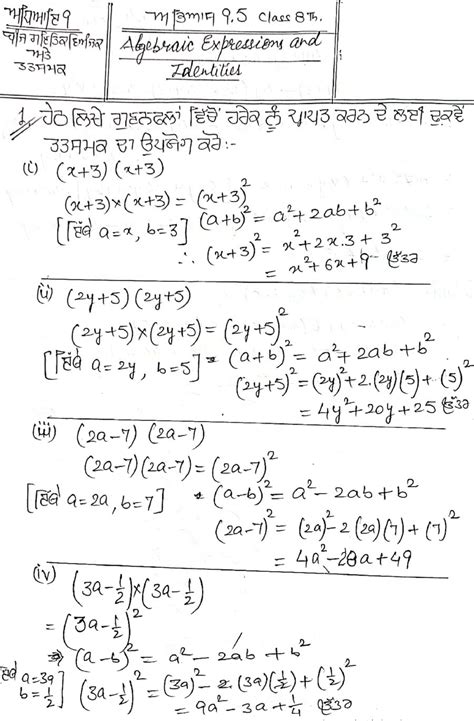 ਅਧਿਆਇ 9
ਬੀਜ ਗਣਿਤਿਕ ਵਿਅੰਜਕ
ਅਤੇ
ਤਤਸਮਕ
ਅਭਿਆਸ 9.5 Class 8th.
Algebraic Expressions and
Identities
1. ਹੇਠ ਲਿਖੇ ਗੁਣਨਫਲਾਂ ਵਿੱਚੋਂ ਹਰੇਕ ਨੂੰ ਪ੍ਰਾਪਤ ਕਰਨ ਦੇ ਲਈ ਢੁਕਵੇਂ
ਤਤਸਮਕ ਦਾ ਉਪਯੋਗ ਕਰੋ:-
(i) (x+3) (x+3)
(x+3)×(x+3) = (x+3)²
[ਇੱਥੇ a=x, b=3] (a+b)² = a²+2ab+b²
∴ (x+3)² = x²+2x.3+3²
= x²+6x+9 ਉੱਤਰ
(ii) (2y+5) (2y+5)
(2y+5)×(2y+5) = (2y+5)²
[ਇੱਥੇ a=2y, b=5] (a+b)² = a²+2ab+b²
(2y+5)² = (2y)²+2.(2y)(5)+(5)²
= 4y²+20y+25 ਉੱਤਰ
(iii) (2a-7) (2a-7)
(2a-7)(2a-7) = (2a-7)²
[ਇੱਥੇ a=2a, b=7] (a-b)² = a²-2ab+b²
(2a-7)² = (2a)²-2(2a)(7)+(7)²
= 4a²-28a+49
(iv) (3a-1/2)×(3a-1/2)
= (3a-1/2)²
⇒ (a-b)² = a²-2ab+b²
ਇੱਥੇ a=3a
b=1/2] (3a-1/2)² = (3a)²-2.(3a)(1/2)+(1/2)²
= 9a²-3a+1/4 ਉੱਤਰ